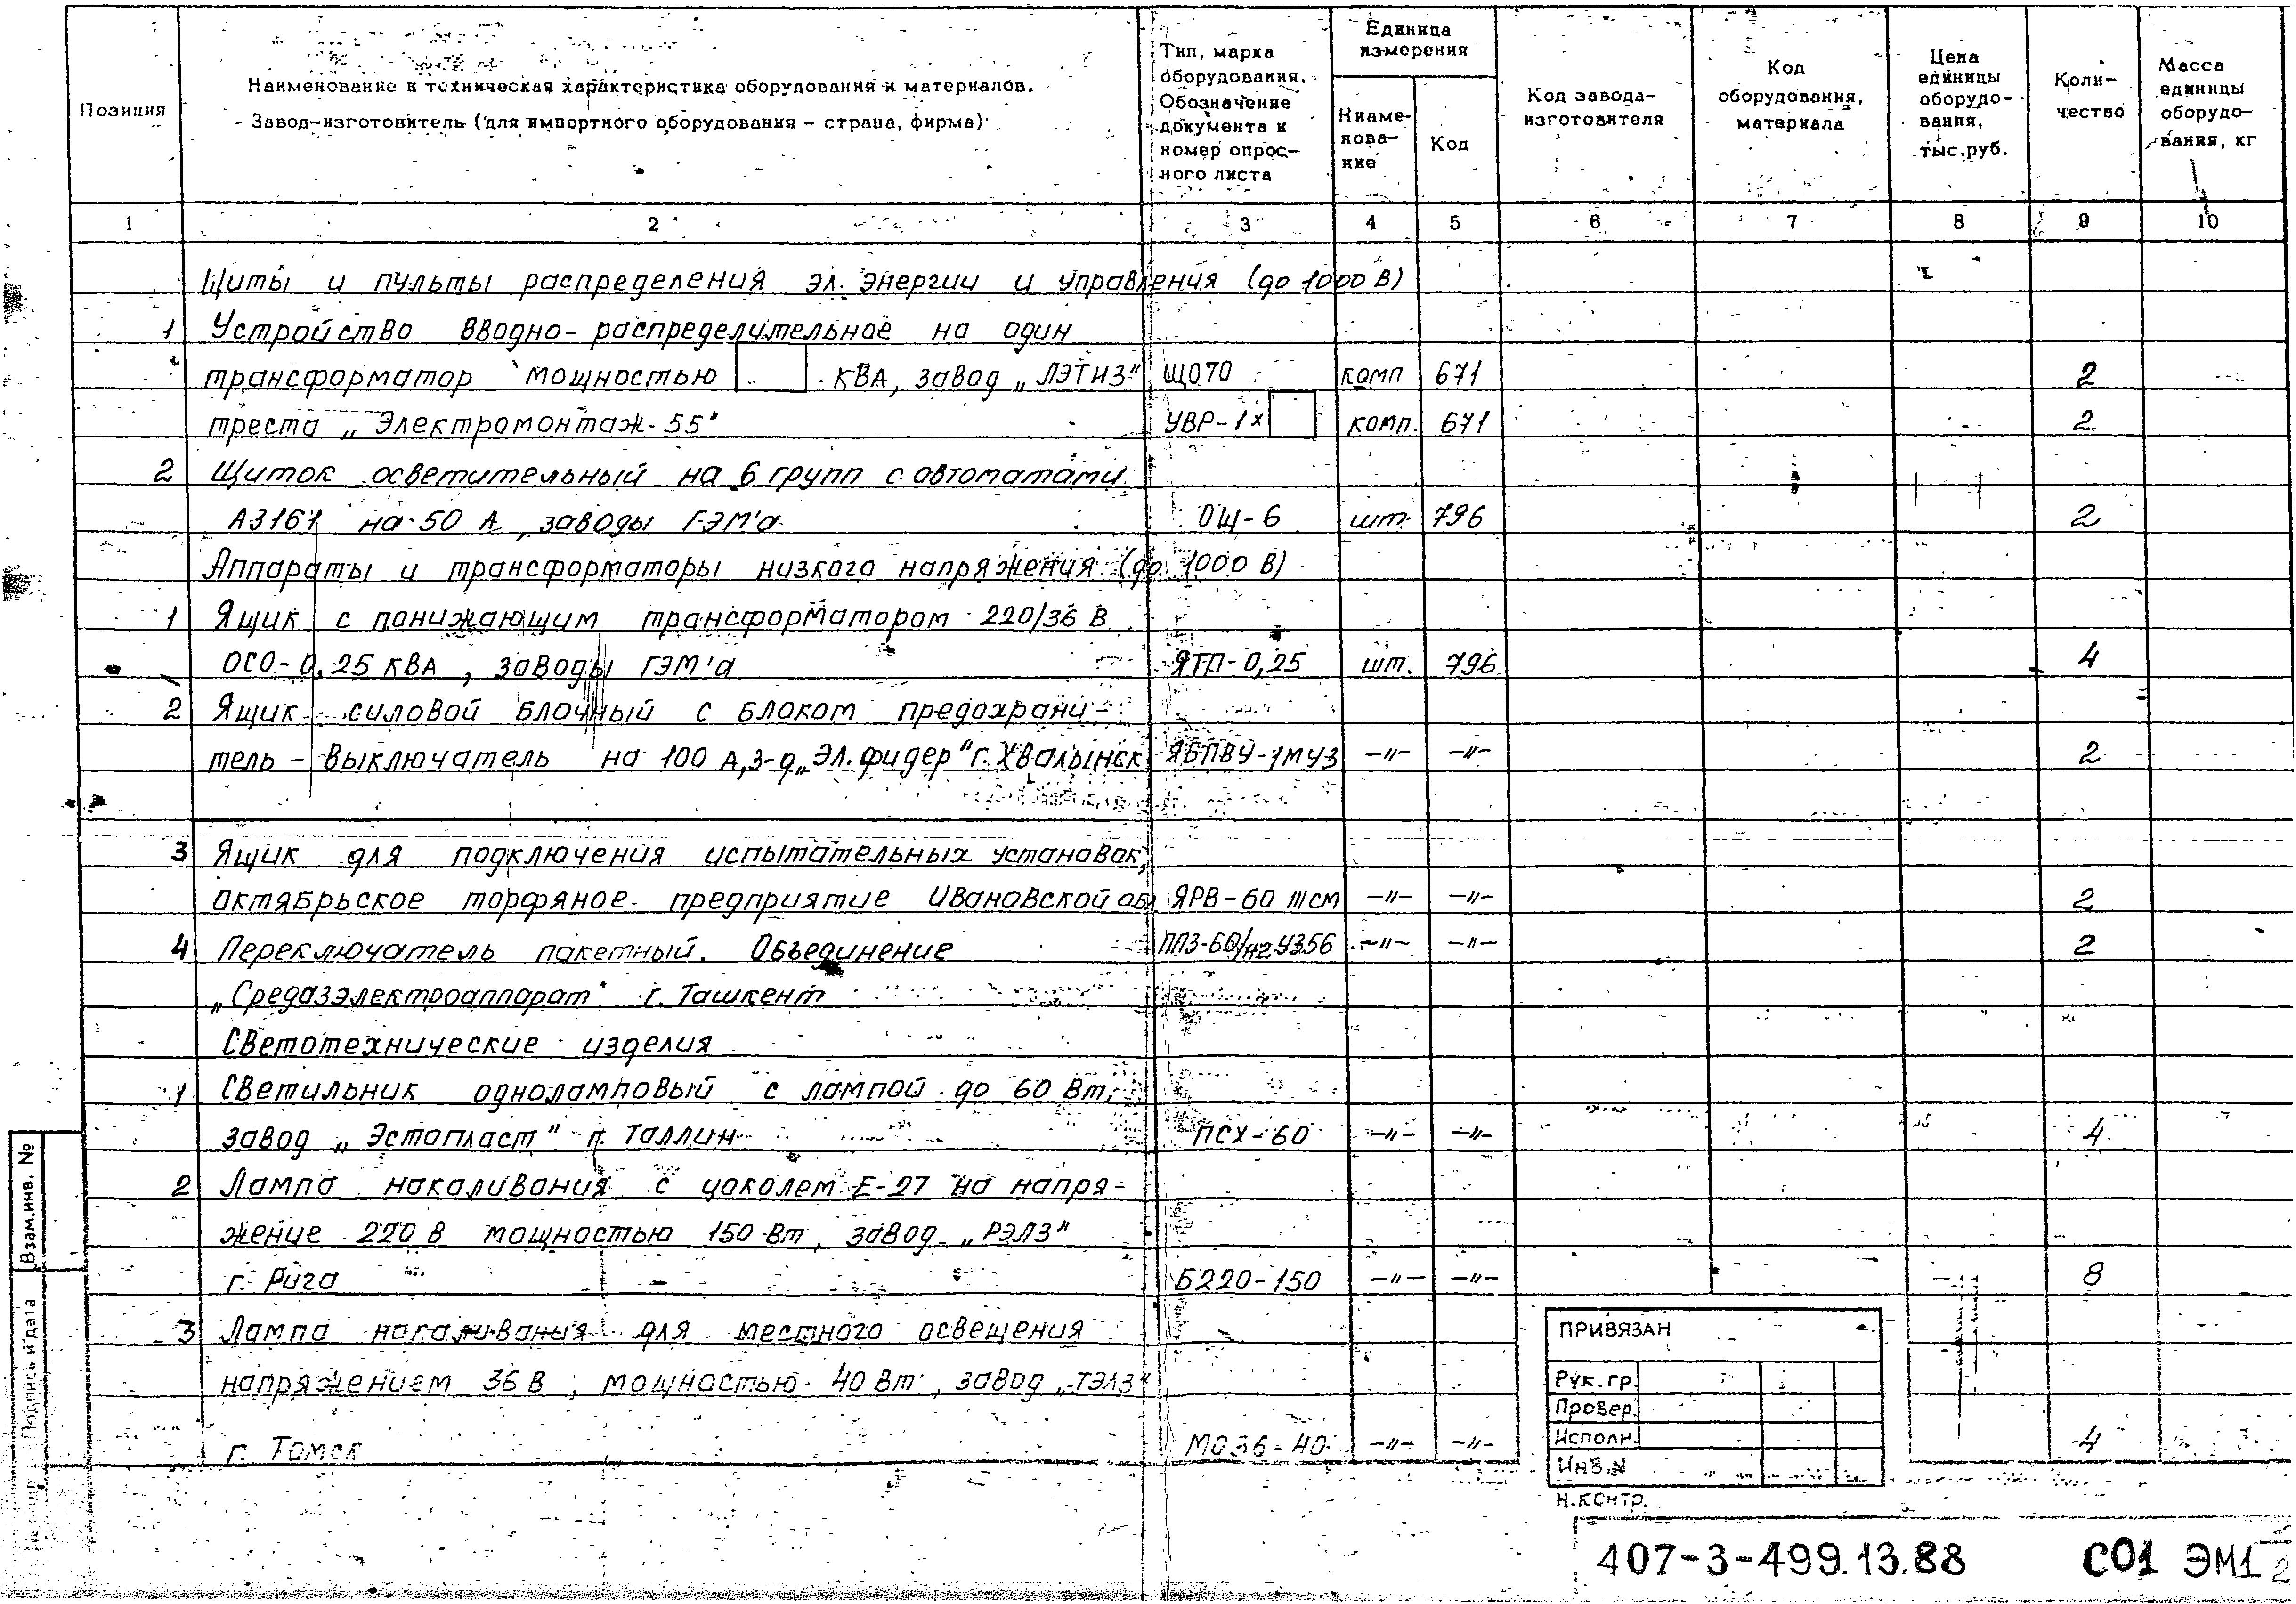 Позиция
Наименование и техническая характеристика оборудования и материалов.
Завод-изготовитель (для импортного оборудования - страна, фирма)
Тип, марка
оборудования.
Обозначение
документа и
номер опрос-
ного листа
Единица
измерения
Наиме-
нова-
ние
Код
Код завода-
изготовителя
Код
оборудования,
материала
Цена
единицы
оборудо-
вания,
тыс.руб.
Коли-
чество
Масса
единицы
оборудо-
вания, кг
1 2 3 4 5 6 7 8 9 10
Щиты и пульты распределения эл. энергии и управления (до 1000 В)
1 Устройство вводно-распределительное на один
трансформатор мощностью КВА, завод „ЛЭТИЗ" ЩО70 комп 671 2
треста „Электромонтаж-55" УВР-1х комп. 671 2
2 Щиток осветительный на 6 групп с автоматами
А3161 на 50 А, заводы ГЭМ'а ОЩ-6 шт. 796 2
Аппараты и трансформаторы низкого напряжения (до 1000 В)
1 Ящик с понижающим трансформатором 220/36 В
ОСО-0,25 КВА, заводы ГЭМ'а ЯТП-0,25 шт. 796 4
2 Ящик силовой блочный с блоком предохрани-
тель-выключатель на 100 А, з-д „Эл.фидер" г. Хвалынск ЯБПВУ-1МУ3 -"- -"- 2
3 Ящик для подключения испытательных установок,
Октябрьское торфяное предприятие Ивановской обл ЯРВ-60 III см -"- -"- 2
4 Переключатель пакетный. Объединение ПП3-60/Н2 У356 -"- -"- 2
„Средазэлектроаппарат" г. Ташкент
Светотехнические изделия
1 Светильник одноламповый с лампой до 60 Вт,
завод „Эстопласт" г. Таллин ПСХ-60 -"- -"- 4
2 Лампа накаливания с цоколем Е-27 на напря-
жение 220 В мощностью 150 Вт, завод „РЭЛЗ"
г. Рига Б220-150 -"- -"- 8
3 Лампа накаливания для местного освещения
напряжением 36 В, мощностью 40 Вт, завод „ТЭЛЗ"
г. Томск МО36-40 -"- -"- 4
Взам.инв. №
Подпись и дата
ПРИВЯЗАН
Рук.гр.
Провер.
Исполн.
Инв.N
Н.контр.
407-3-499.13.88 СО1 ЭМ1 2